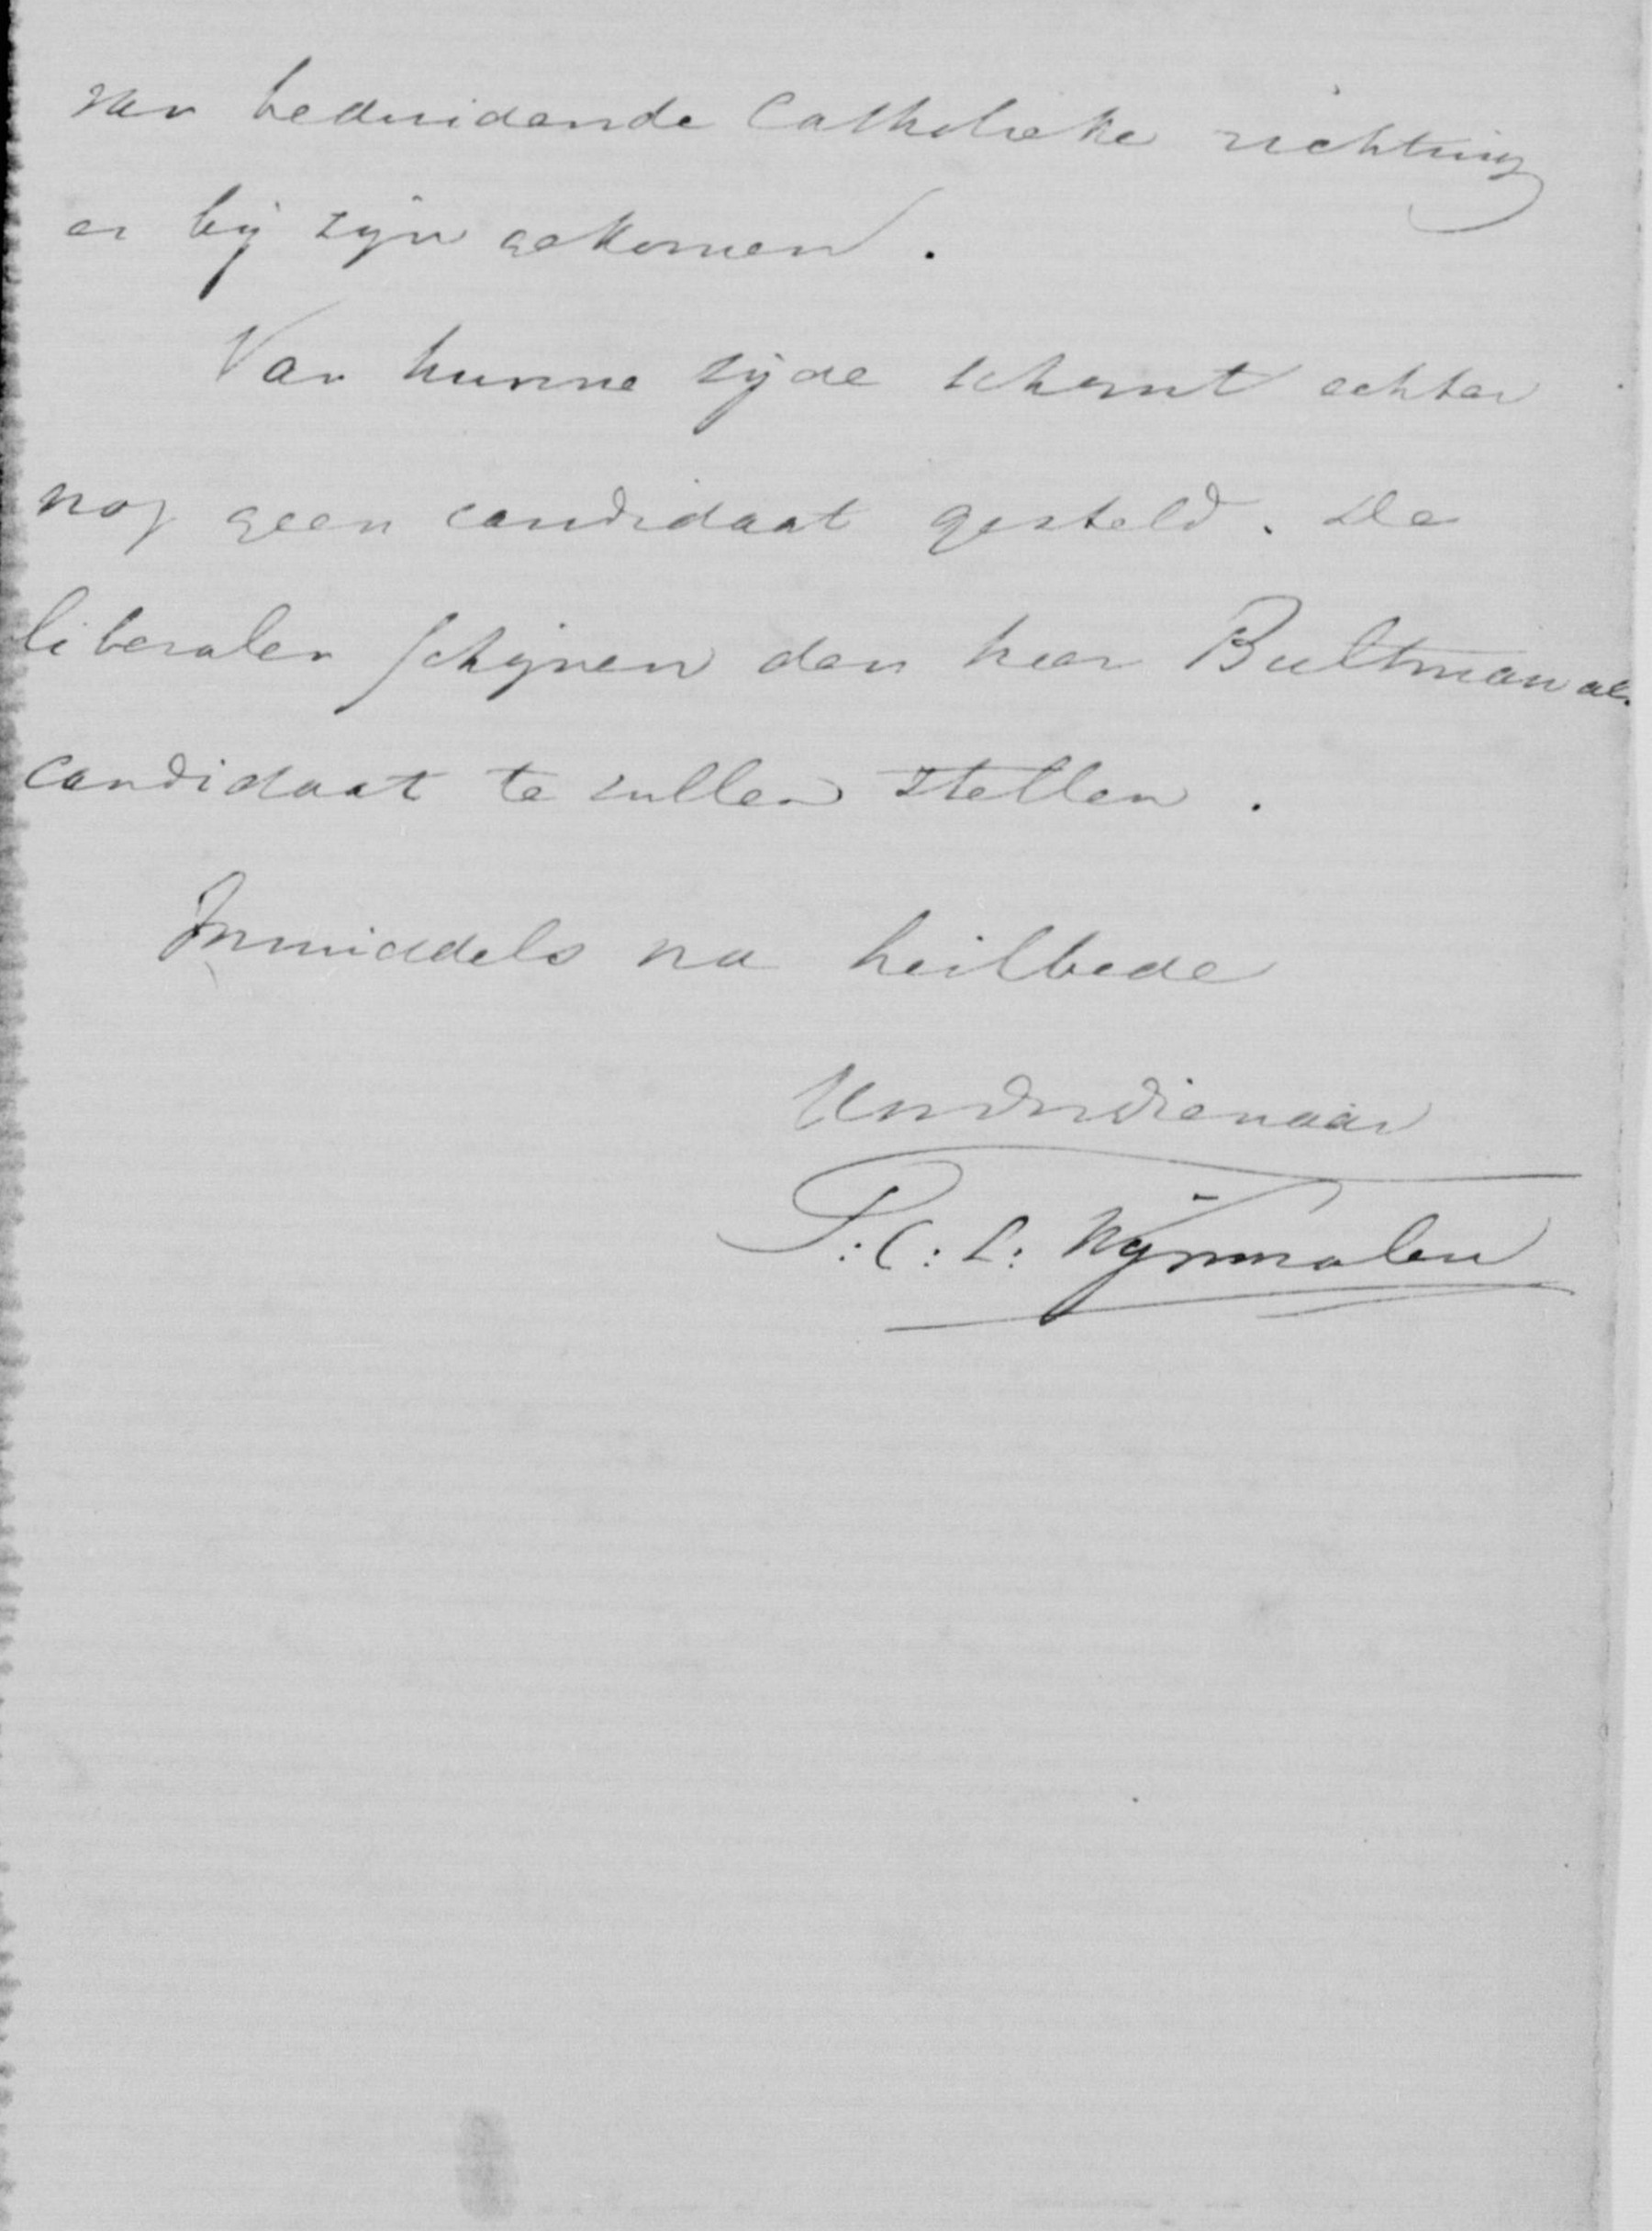 van beduidende Catholieke richting
er bij zijn gekomen.
Van hunne zijde schijnt echter
nog geen candidaat gesteld. De
liberalen schijnen den heer Bultman als
candidaat te zullen stellen.
Inmiddels na heilbede
Uw dw dienaar
P. C. L. Wijnmalen